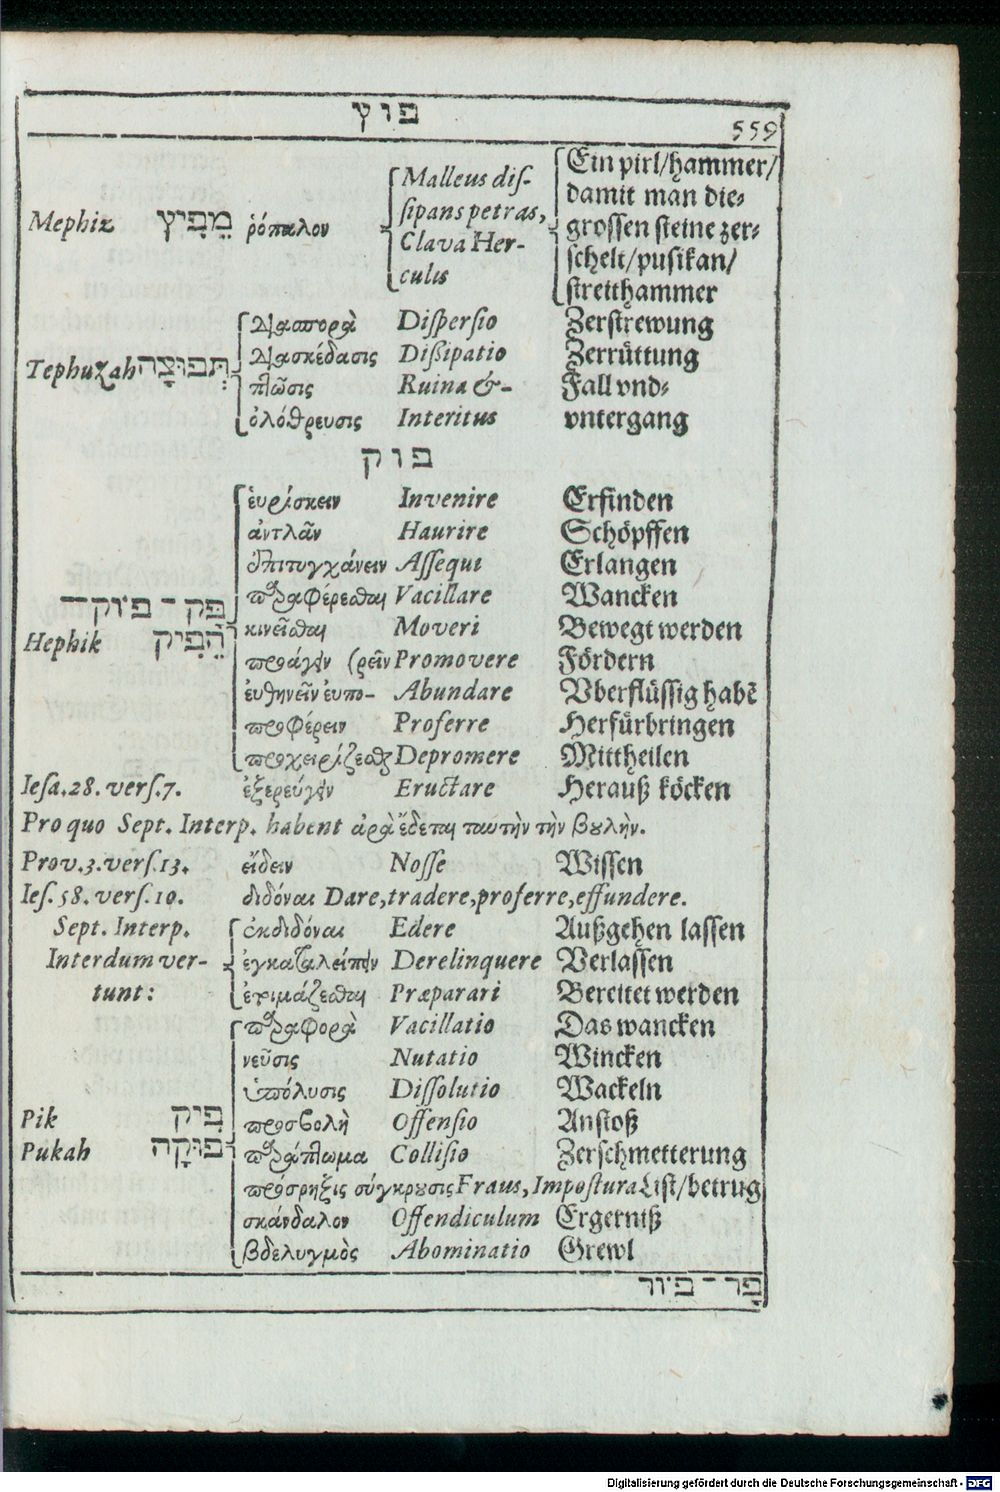 פוץ
559
Mephiz מֵפִיץ ῥόπαλον Malleus dis- Ein pirl/hammer/
sipans petras, damit man die-
Clava Her- grossen steine zer-
culis schelt/pusikan/
streithammer
διασπορὰ Dispersio Zerstrewung
Tephuzah תְּפוּצָה διασκέδασις Dißipatio Zerrüttung
πτῶσις Ruina &- Fall vnd-
ὀλόθρευσις Interitus vntergang
פוק
ἑυρίσκειν Invenire Erfinden
ἀντλᾶν Haurire Schöpffen
ἐπιτυγχάνειν Assequi Erlangen
פק - פיוק - παραφέρεσθαι Vacillare Wancken
Hephik הֵפִיק κινεῖσθαι Moveri Bewegt werden
προάγειν (ρεῖν Promovere Fördern
ἐυθηνεῖν ἐυπο- Abundare Vberflüssig habẽ
προφέρειν Proferre Herfürbringen
προχειρίζεσθαι Depromere Mittheilen
Iesa.28. vers.7. ἐξερεύγειν Eructare Herauß köcken
Pro quo Sept. Interp. habent ἀρὰ ἔδεται ταυτὴν τὴν βουλὴν.
Prov.3. vers.13. εἴδειν Nosse Wissen
Ies.58. vers.10. διδόναι Dare, tradere, proferre, effundere.
Sept. Interp. ἐκδιδόναι Edere Außgehen lassen
Interdum ver- ἐγκαταλείπειν Derelinquere Verlassen
tunt: ἑτοιμάζεσθαι Præparari Bereitet werden
παραφορὰ Vacillatio Das wancken
νεῦσις Nutatio Wincken
ὑπόλυσις Dissolutio Wackeln
Pik פִיק προσβολὴ Offensio Anstoß
Pukah פוּקָה παράπτωμα Collisio Zerschmetterung
πρόσρηξις σύγκρουσις Fraus, Impostura List/betrug
σκάνδαλον Offendiculum Ergerniß
βδελυγμὸς Abominatio Grewl
פָר - פיור
Digitalisierung gefördert durch die Deutsche Forschungsgemeinschaft - DFG